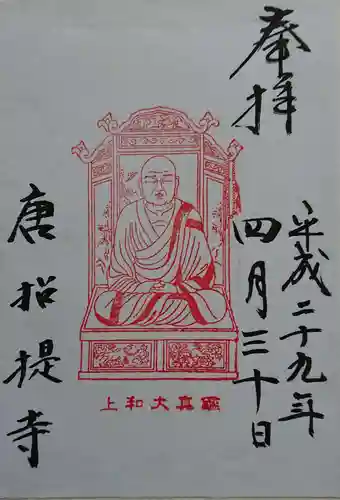 奉拝
平成二十九年
四月三十日
上和大真鑑
唐招提寺